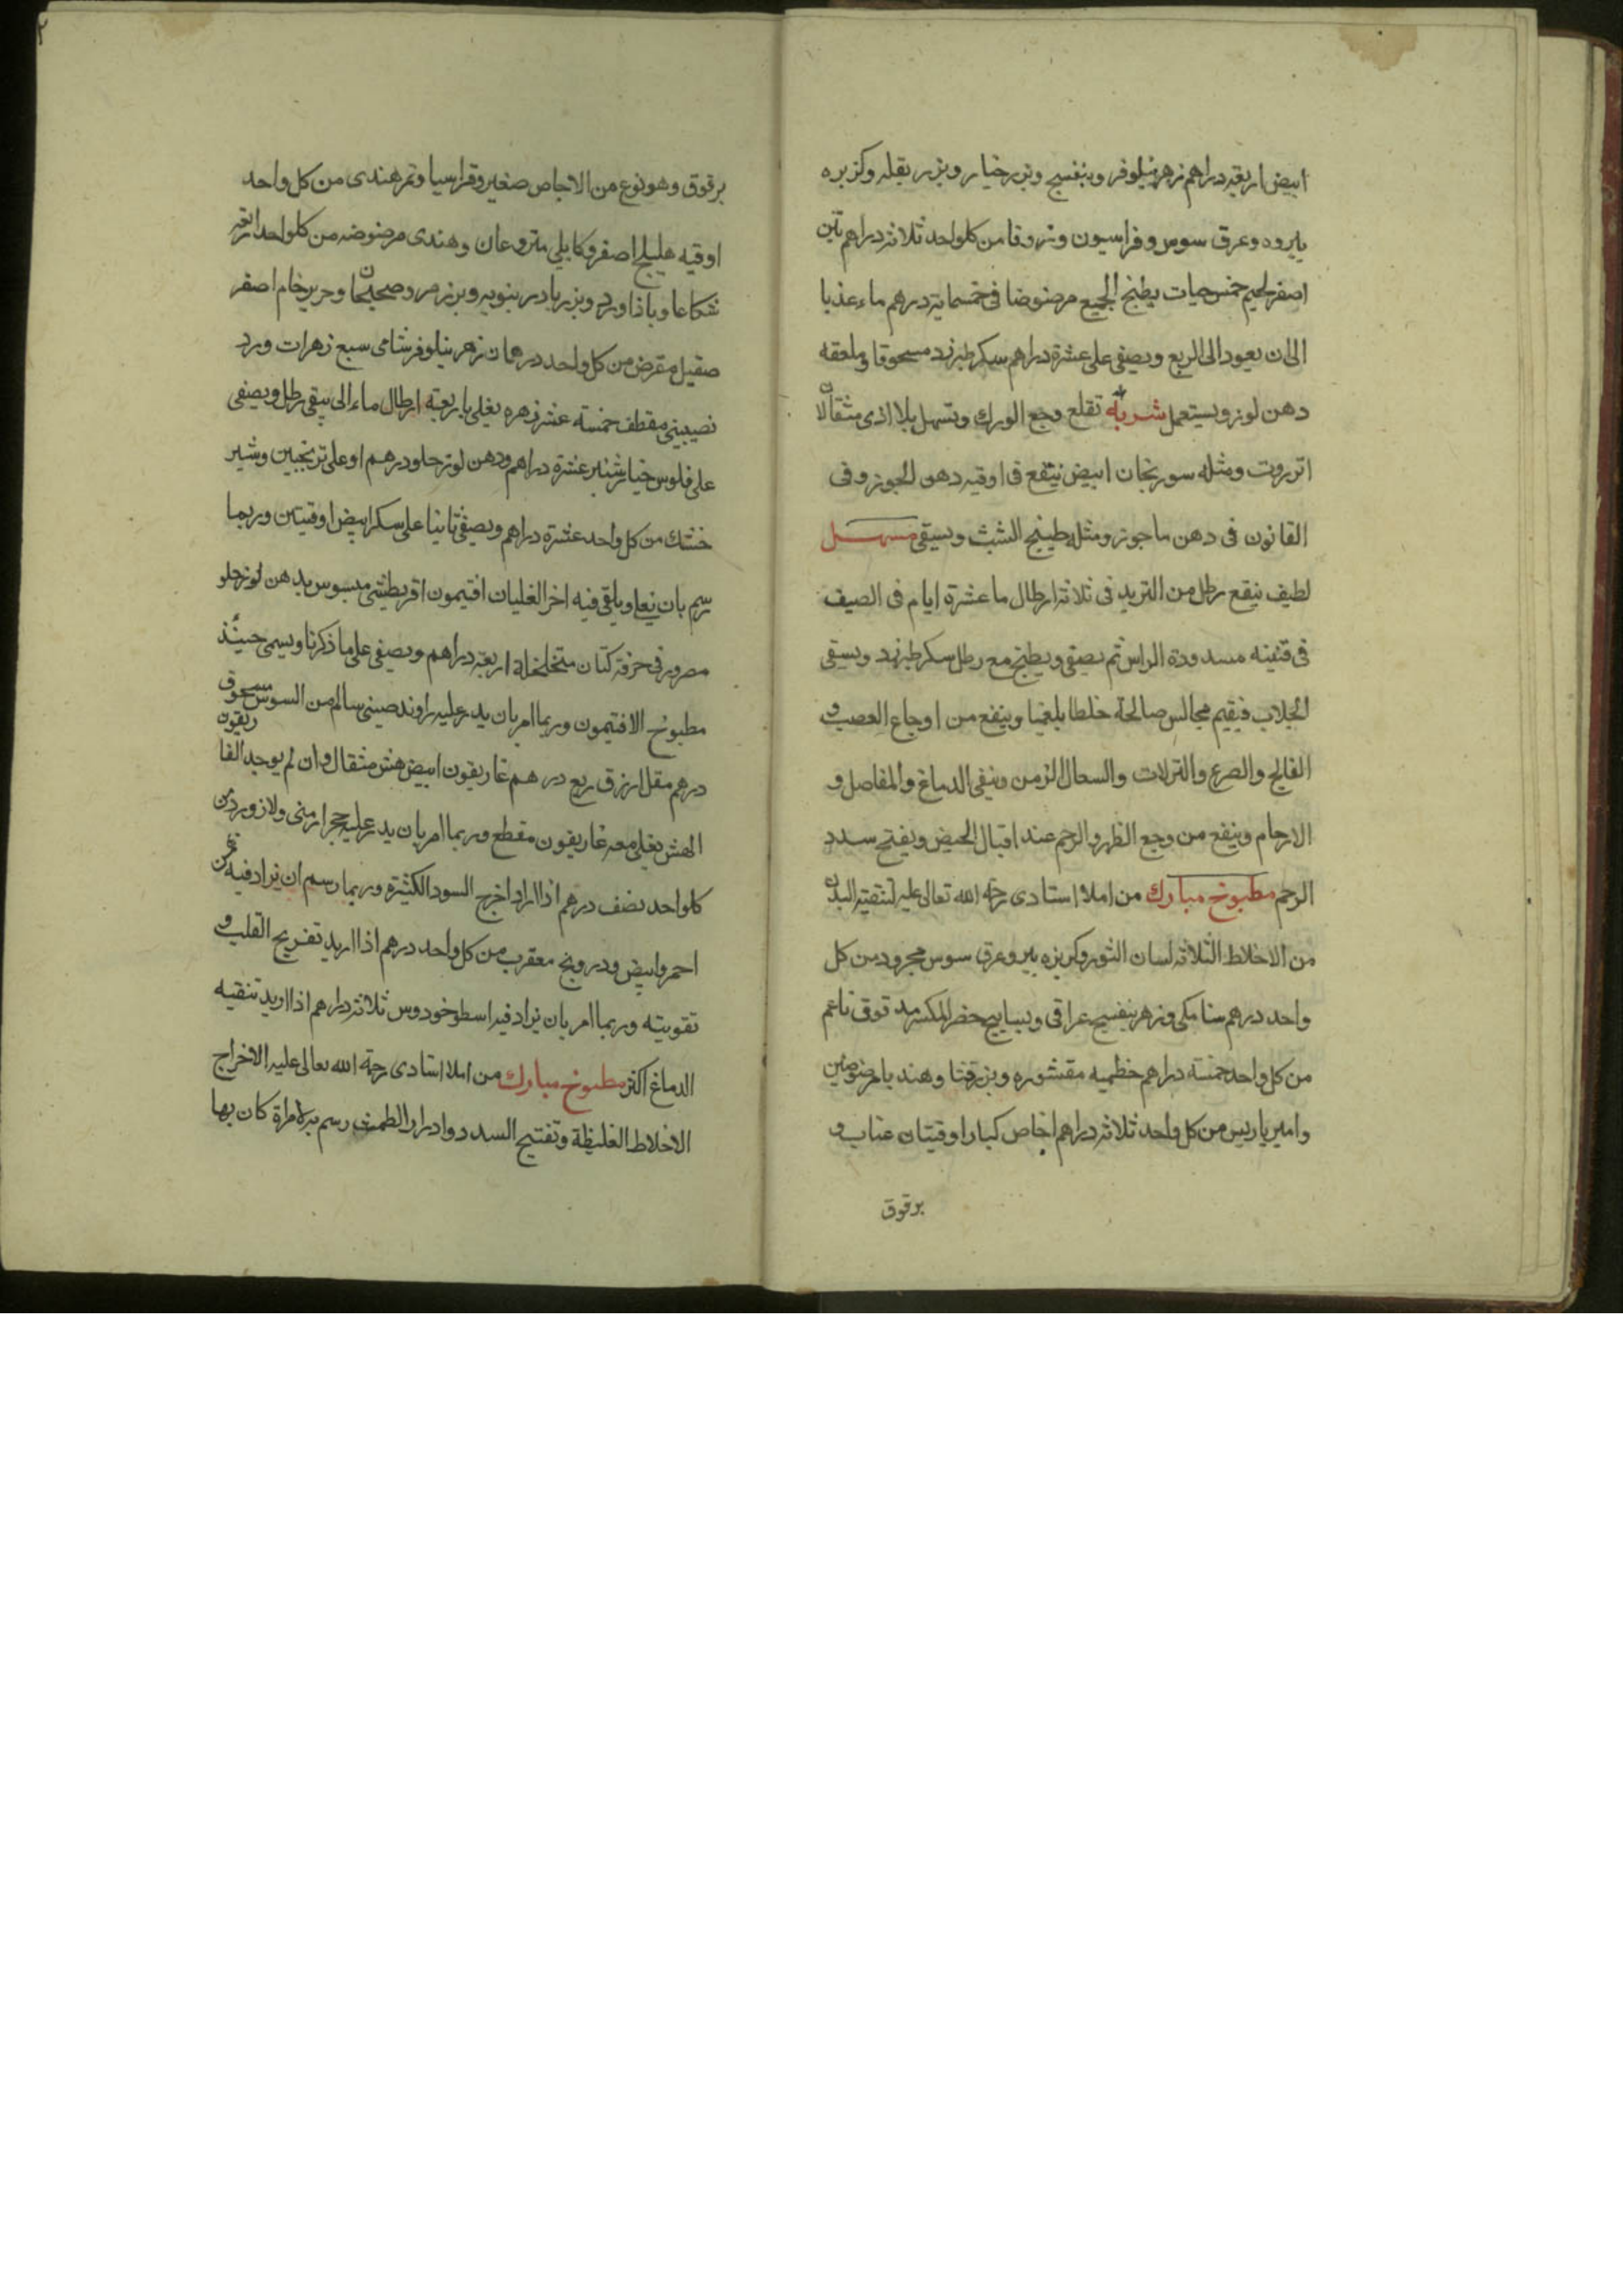 ابيض اربعة دراهم زهر نيلوفر وبنفسج وبزر خيار وبزر بقله وكزبره
بيروه وعرق سوس وفراسيون وزوفا من كلواحد ثلاثة دراهم تين
اصفر لحيم خمس حبات يطبخ الجميع مرضوضا فى خمسماية درهم ماء عذبا
الى ان يعود الى الربع ويصفى على عشرة دراهم سكر طبرزد مسحوقا وملعقه
دهن لوز ويستعمل شربة تقلع وجع الورك وتسهل بلا اذى مثقالان
انزروت ومثله سورنجان ابيض ينقع فى اوقيه دهن الجوز وفى
القانون فى دهن ماجوز ومثله طبيخ الشبث ويسقى مسهل
لطيف ينقع رطل من التربد فى ثلاثة ارطال ما عشرة ايام فى الصيف
فى قنينه مسدودة الراس ثم يصفى ويطبخ مع رطل سكر طبرزد ويسقى
الجلاب فيقيم مجالس صالحة خلطا بلغميا وينفع من اوجاع العصب و
الفالج والصرع والنزلات والسعال المزمن وينقى الدماغ والمفاصل و
الارحام وينفع من وجع الظهر والرحم عند اقبال الحيض ويفتح سدد
الرحم مطبوخ مبارك من املا استادى رحمة الله تعالى عليه لتنقية البدن
من الاخلاط الثلاثة لسان الثور وكزبزه بير وعرق سوس مجرود من كل
واحد درهم سنا مكى وزهر بنفسج عراقى وبسابيج خضر المكسر مدقوق ناعم
من كل واحد خمسة دراهم خطميه مقشوره وبزر قثا وهندبا مرضوضين
وامير باريس من كل واحد ثلاثة دراهم اجاص كبار اوقيتان عناب و
برقوق
برقوق وهو نوع من الاجاص صغير وقراسيا وتمر هندى من كل واحد
اوقيه هليلج اصفر وكابلى منزوعان وهندى مرضوضه من كلواحد اربعة
شكاعا وباذاورد وبزر بادرنبويه وبزر مرو صحيحان وحرير خام اصفر
صقيل مقرض من كل واحد درهمان زهر نيلوفر شامى سبع زهرات ورد
نصيبينى مقطف خمسة عشر زهره يغلى باربعة ارطال ماء الى يبقى رطل ويصفى
على فلوس خيار شنبر عشرة دراهم ودهن لوز حلو درهم او على ترنجبين وشير
خشك من كل واحد عشرة دراهم ويصفى ثانيا على سكر ابيض اوقيتين وربما
رسم بان يلقى فيه اخر الغليان افتيمون اقريطشى مبسوس بدهن لوز حلو
مصرور فى خرقة كتان متخلخلة اربعة دراهم ويصفى على ما ذكرنا ويسمى حينئذ
مطبوخ الافتيمون وربما امر بان يدر عليه راوند صينى سالم من السوس مسحوق
درهم مقل ازرق ربع درهم غاريقون ابيض هش مثقال وان لم يوجد الغاريقون
الهش يغلى معه غاريقون مقطع وربما امر بان يدر عليه حجر ارمنى ولازورد من
كلواحد نصف درهم اذا اراد اخرج السودا الكثيرة وربما رسم ان يزاد فيه بهمن
احمر وابيض ودرونج معقرب من كل واحد درهم اذا اريد تفريح القلب و
تقويته وربما امر بان يزاد فيه اسطوخودوس ثلاثة دراهم اذا اريد تنقيه
الدماغ اكثر مطبوخ مبارك من املا استادى رحمة الله تعالى عليه الاخراج
الاخلاط الغليظة وتفتيح السدد وادرار الطمث رسم به لامراة كان بها